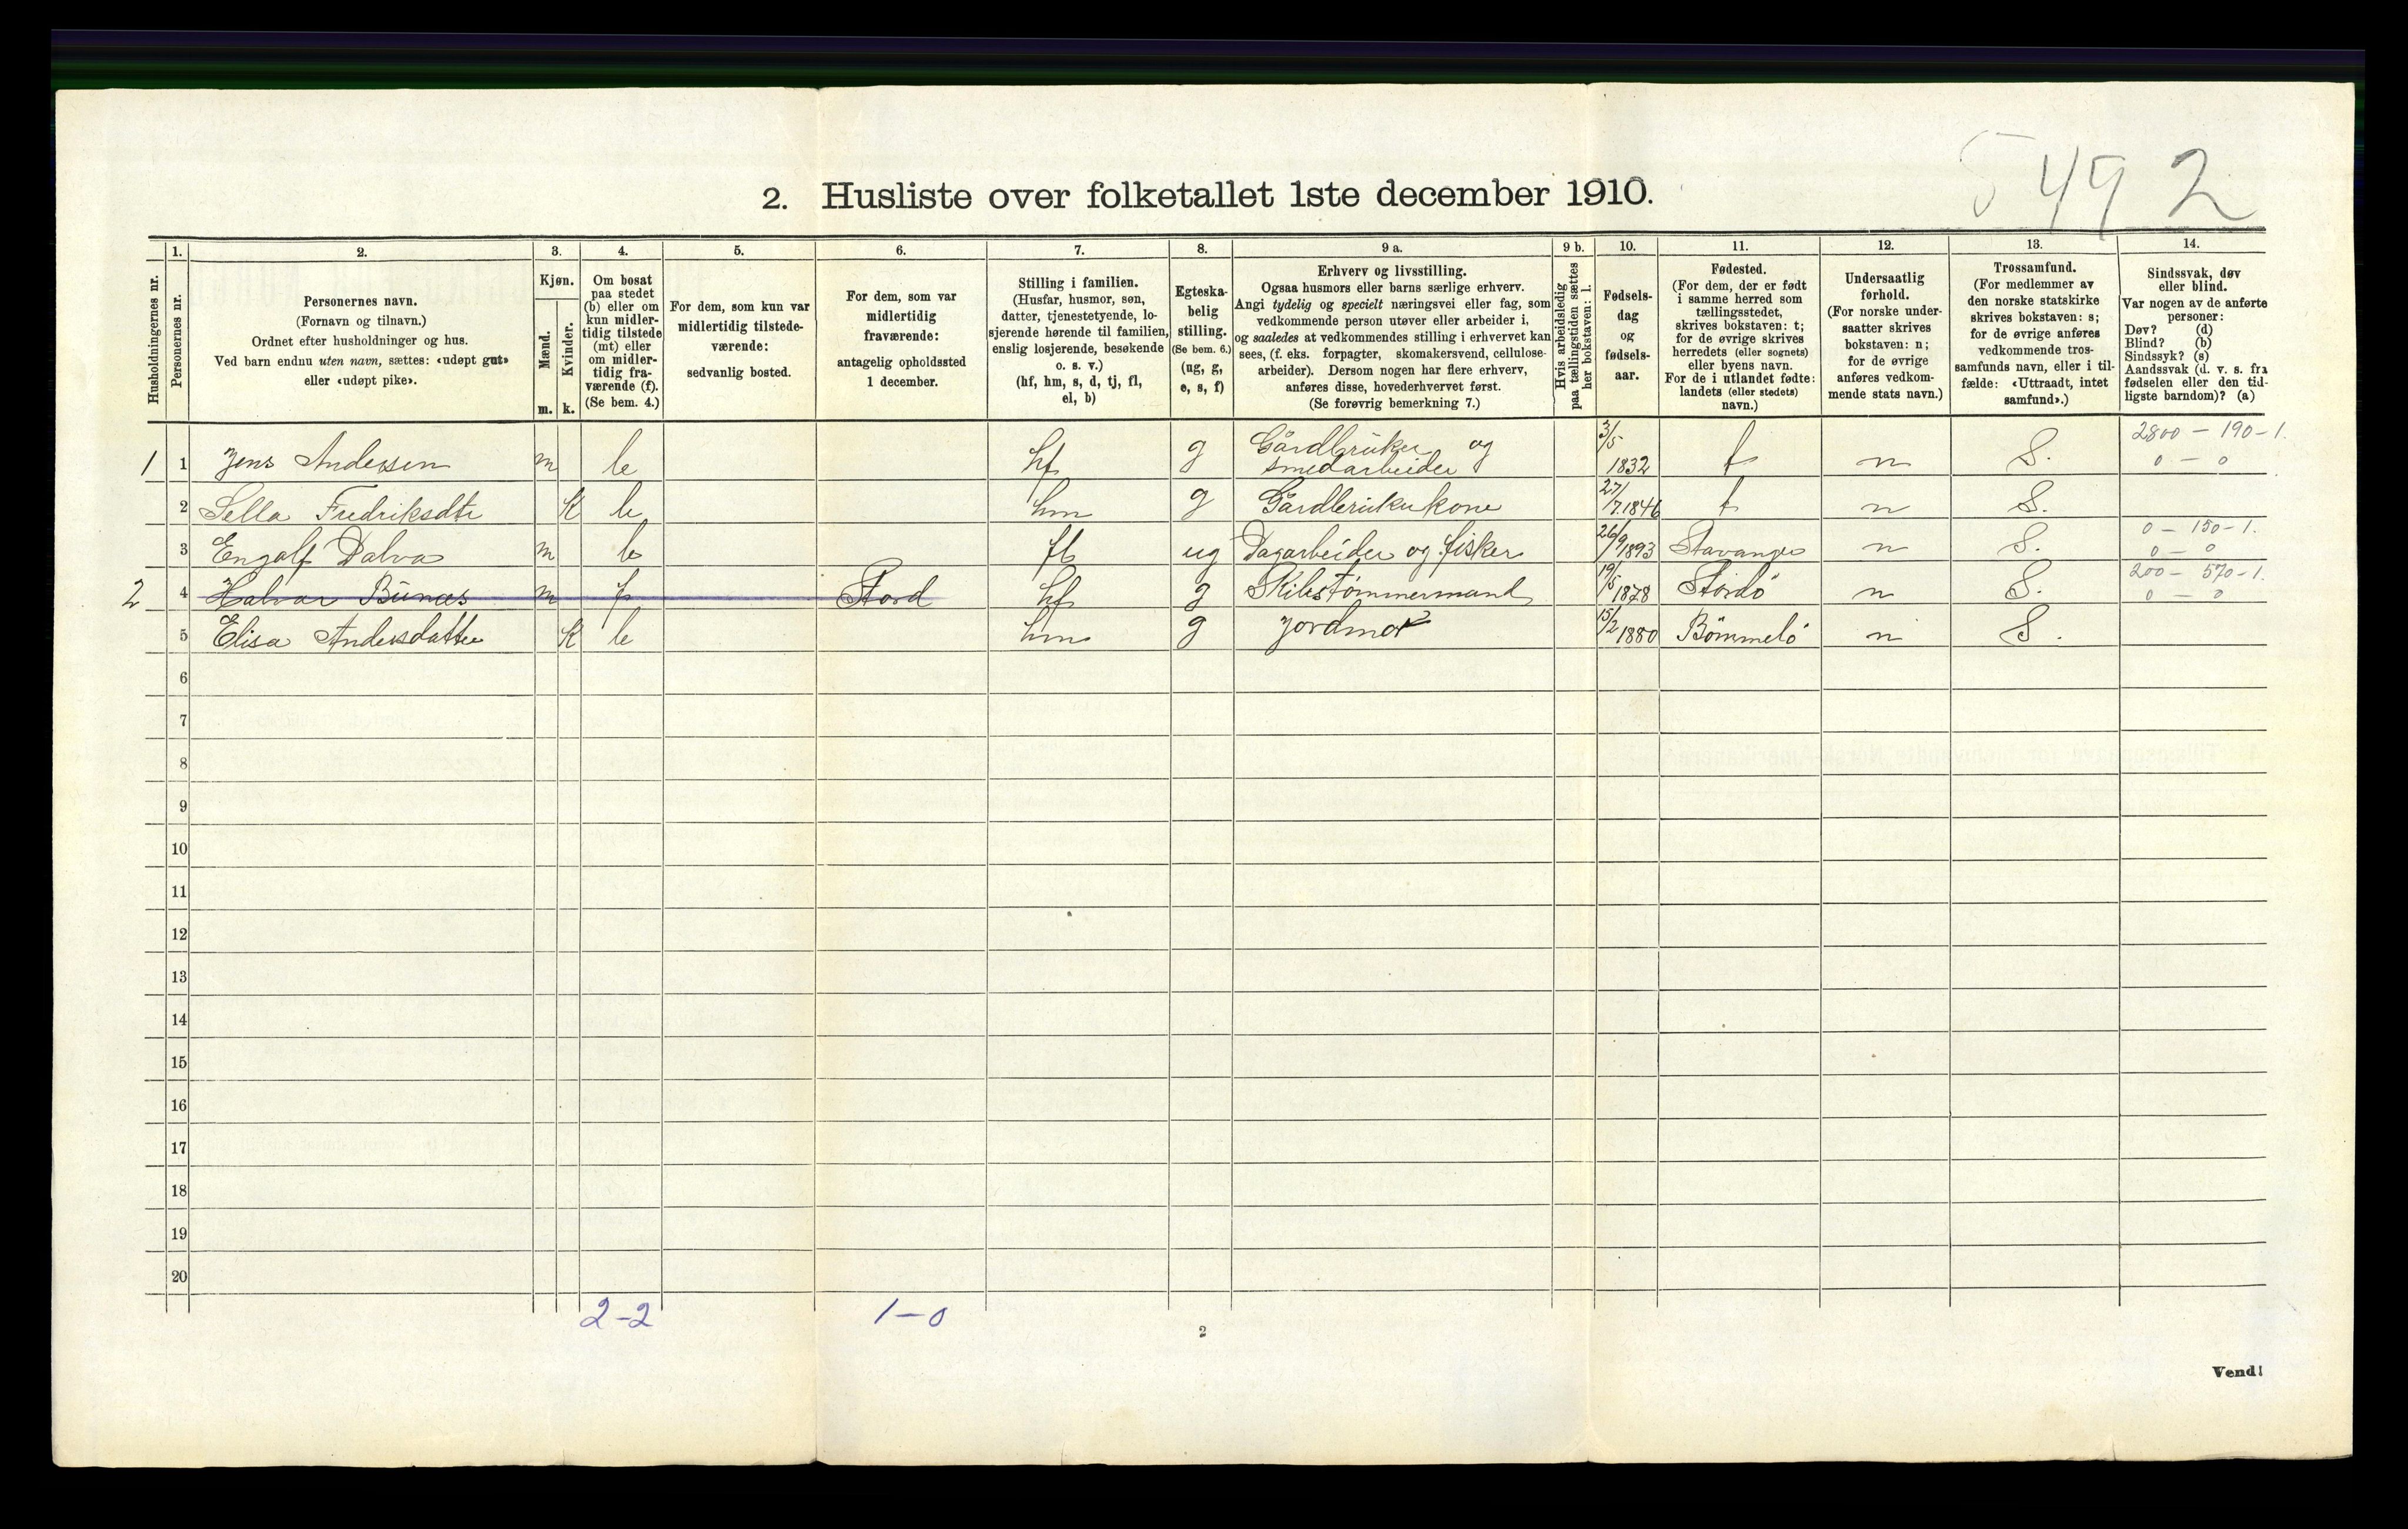 5492
2. Husliste over folketallet 1ste december 1910.
Husholdningernes nr.
1.
Personernes nr.
2.
Personernes navn.
(Fornavn og tilnavn.)
Ordnet efter husholdninger og hus.
Ved barn endnu uten navn, sættes: «udøpt gut»
eller «udøpt pike».
3.
Kjøn.
Mænd.
Kvinder.
m. k.
4.
Om bosat
paa stedet
(b) eller om
kun midler-
tidig tilstede
(mt) eller
om midler-
tidig fra-
værende (f).
(Se bem. 4.)
5.
For dem, som kun var
midlertidig tilstede-
værende:
sedvanlig bosted.
6.
For dem, som var
midlertidig
fraværende:
antagelig opholdssted
1 december.
7.
Stilling i familien.
(Husfar, husmor, søn,
datter, tjenestetyende, lo-
sjerende hørende til familien,
enslig losjerende, besøkende
o. s. v.)
(hf, hm, s, d, tj, fl,
el, b)
8.
Egteska-
belig
stilling.
(Se bem. 6.)
(ug, g,
e, s, f)
9 a.
Erhverv og livsstilling.
Ogsaa husmors eller barns særlige erhverv.
Angi tydelig og specielt næringsvei eller fag, som
vedkommende person utøver eller arbeider i,
og saaledes at vedkommendes stilling i erhvervet kan
sees, (f. eks. forpagter, skomakersvend, cellulose-
arbeider). Dersom nogen har flere erhverv,
anføres disse, hovederhvervet først.
(Se forøvrig bemerkning 7.)
9 b.
Hvis arbeidsledig
paa tællingstiden sættes
her bokstaven: l.
10.
Fødsels-
dag
og
fødsels-
aar.
11.
Fødested.
(For dem, der er født
i samme herred som
tællingsstedet,
skrives bokstaven: t;
for de øvrige skrives
herredets (eller sognets)
eller byens navn.
For de i utlandet fødte:
landets (eller stedets)
navn.)
12.
Undersaatlig
forhold.
(For norske under-
saatter skrives
bokstaven: n;
for de øvrige
anføres vedkom-
mende stats navn.)
13.
Trossamfund.
(For medlemmer av
den norske statskirke
skrives bokstaven: s;
for de øvrige anføres
vedkommende tros-
samfunds navn, eller i til-
fælde: «Uttraadt, intet
samfund».)
14.
Sindssvak, døv
eller blind.
Var nogen av de anførte
personer:
Døv? (d)
Blind? (b)
Sindssyk? (s)
Aandssvak (d. v. s. fra
fødselen eller den tid-
ligste barndom)? (a)
2800 - 190 - 1.
1 1 Jens Andersen m b hf g Gårdbruker og smedarbeider 3/5 1832 t n S. 0 - 0
2 Sella Fredriksdtr K b hm g Gårdbrukerkone 27/7.1846 t n S.
0 - 150 - 1.
3 Engalf Dalva m b fl ug Dagarbeider og fisker 26/9 1893 Stavanger n S. 0 - 0
200 - 570 - 1.
2 4 Halvar Bünæs m f Stord hf g Skibstømmermand 19/5 1878 Stordö n S. 0 - 0
5 Elisa Andersdatter K b hm g Jordmor 15/2 1880 Bömmelö n S.
6
7
8
9
10
11
12
13
14
15
16
17
18
19
20
2-2 1-0
2
Vend!